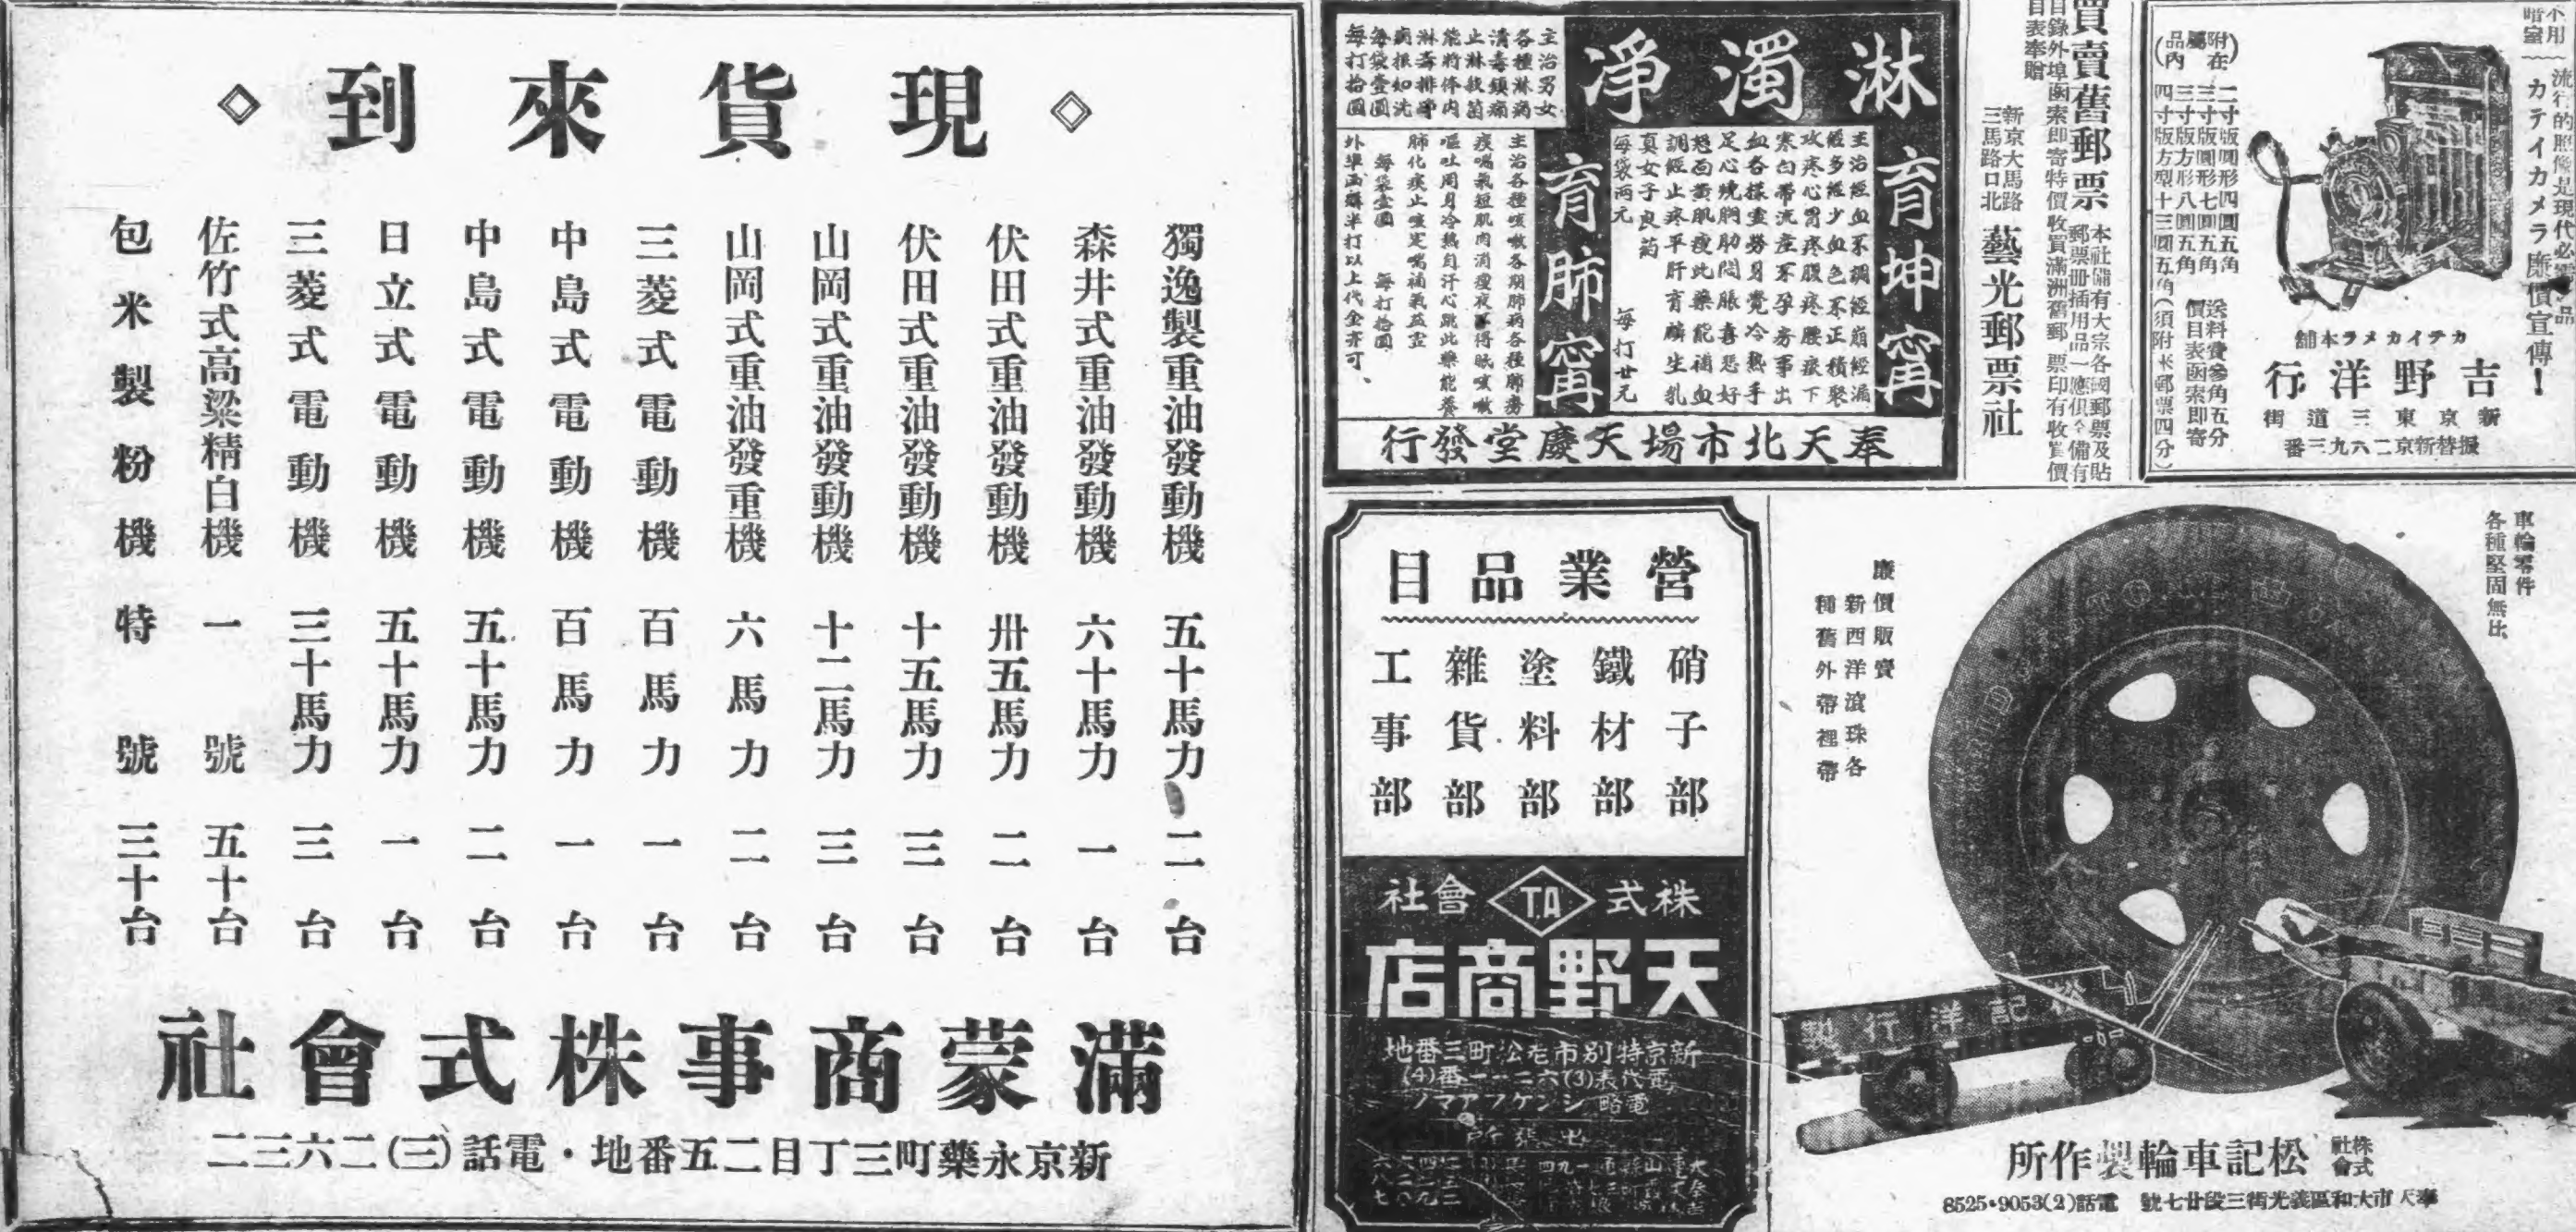 現貨來到
獨逸製重油發動機 五十馬力 二台
森井式重油發動機 六十馬力 一台
伏田式重油發動機 卅五馬力 二台
伏田式重油發動機 十五馬力 三台
山岡式重油發動機 十二馬力 三台
山岡式重油發重機 六馬力 二台
三菱式電動機 百馬力 一台
中島式電動機 百馬力 一台
中島式電動機 五十馬力 二台
日立式電動機 五十馬力 一台
三菱式電動機 三十馬力 三台
佐竹式高粱精白機 一號 五十台
包米製粉機 特號 三十台
滿蒙商事株式會社
新京永樂町三丁目二五番地・電話(三)二六三二
淋濁淨
主治男女
各種淋病
清毒鎮痛
止淋殺菌
能將体内
淋毒排淨
病根如洗
每袋壹圓
每打拾圓
育坤甯
主治經血不調經崩經漏
經多經少血色不正積聚
攻疼心胃疼腹疼腰痠下
寒白帶流產不孕房事出
血各樣虛勞身覺冷熱手
足心燒胸肋悶脹喜怒好
怒面黃肌瘦此藥能補血
調經止疼平肝育麟生乳
真女子良葯
每袋兩元 每打廿元
育肺甯
主治各種咳嗽各期肺病各種肺癆
痰喘氣短肌肉消瘦夜不得眠咳嗽
嘔吐周身冷熱自汗心跳此藥能養
肺化痰止咳定喘補氣益虛
每袋壹圓 每打拾圓
外埠函購半打以上代金亦可、
奉天北市場天慶堂發行
買賣舊郵票
本社備有大宗各國郵票及貼
郵票册插用品一應俱全備有
目錄外埠函索即寄特價收買滿洲舊郵票印有收買價
目表奉贈
新京大馬路
三馬路口北
藝光郵票社
不用
暗室
流行的照像是現代必需品
カテイカメラ廉價宣傳!
(附屬品在内)
二寸版圓形四圓五角
三寸版圓形七圓五角
三寸版方形八圓五角
四寸版方型十三圓五角(須附來郵票四分)
送料費參角五分
價目表函索即寄
カテイカメラ本舖
吉野洋行
新京東三道街
振替新京二六九三番
營業品目
硝子部
鐵材部
塗料部
雜貨部
工事部
株式 T.A 會社
天野商店
新京特別市老松町三番地
電代表(3)六二一一番(4)
電略 シンケフアマノ
出張所
車輪零件
各種堅固無比
廉價販賣
新西洋滾珠各
種舊外帶裡帶
松記洋行製
株式會社 松記車輪製作所
奉天市大和區義光街三段廿七號 電話(2)9053・8525